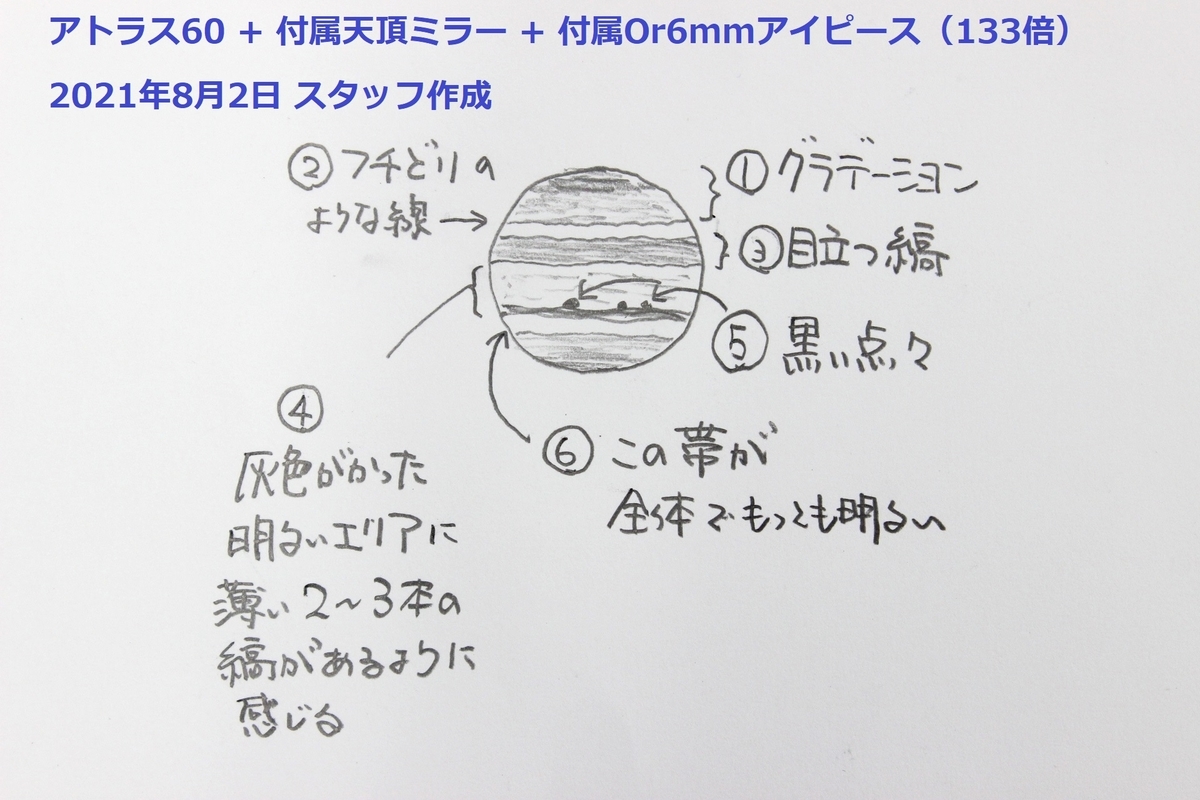 アトラス60 + 付属天頂ミラー + 付属Or6mmアイピース（133倍）
2021年8月2日 スタッフ作成
② フチどりの
ような線→
① グラデーション
③ 目立つ縞
⑤ 黒い点々
④
灰色がかった
明るいエリアに
薄い2〜3本の
縞があるように
感じる
⑥ この帯が
全体でもっとも明るい